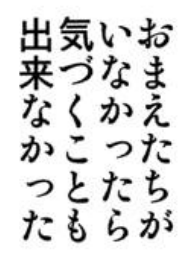 おまえたちが
いなかったら
気づくことも
出来なかった